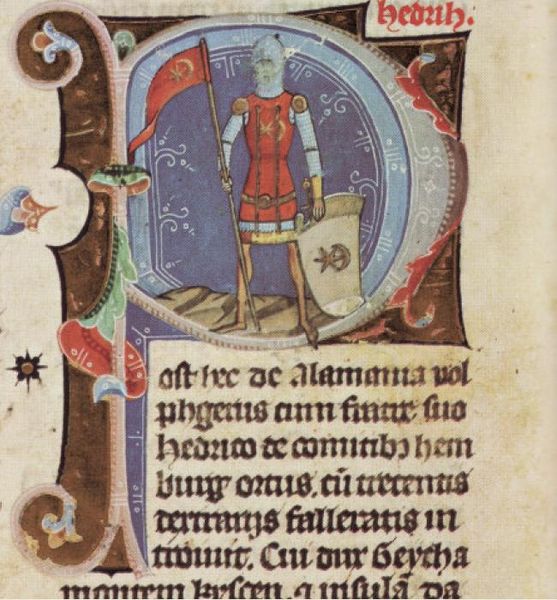 hedrih.
Post hec de Alamania vol
phgerus cum fratre suo
Hedrico de comitibꝫ hem
burg ortus. cū trecentis
dextrarijs falleratis in
troiuit. Cui dux Geycha
montem kyscen. ⁊ insulā da